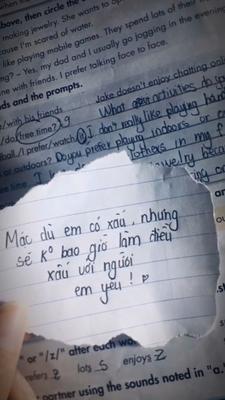 above, then circle the
making jewelry. She wants to
cause I'm scared of water.
like playing mobile games. They spend lots of their
ng? – Yes, my dad and I usually go jogging in the evening
ine with friends. I prefer talking face to face.
ds and the prompts.
Jake doesn't enjoy chatting onli
/with his friends
/do free time? g
What activities do
ball./I prefer/watch
I don't really like playing hand
or outdoors? Do you prefer playing indoors or
in my f
Mặc dù em có xấu, nhưng
sẽ K° bao giờ làm điều
xấu với người
em yêu!
or "/z/" after each
refers z lots s enjoys z
partner using the sounds noted in "a."